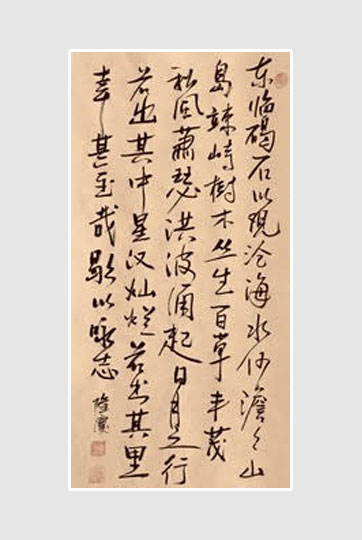 东临碣石以观沧海水何澹々山
岛竦峙树木丛生百草丰茂
秋风萧瑟洪波涌起日月之行
若出其中星汉灿烂若出其里
幸甚至哉歌以咏志
隆广